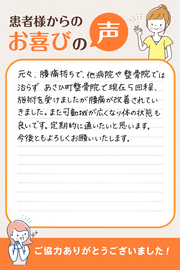 患者様からの
お喜びの声
元々、腰痛持ちで、他病院や整骨院では
治らず あさひ町整骨院で現在5回程、
施術を受けましたが腰痛が改善されてい
きました。また可動域が広くなり体の状態も
良いです。定期的に通いたいと思います。
今後ともよろしくお願いいたします。
ご協力ありがとうございました！